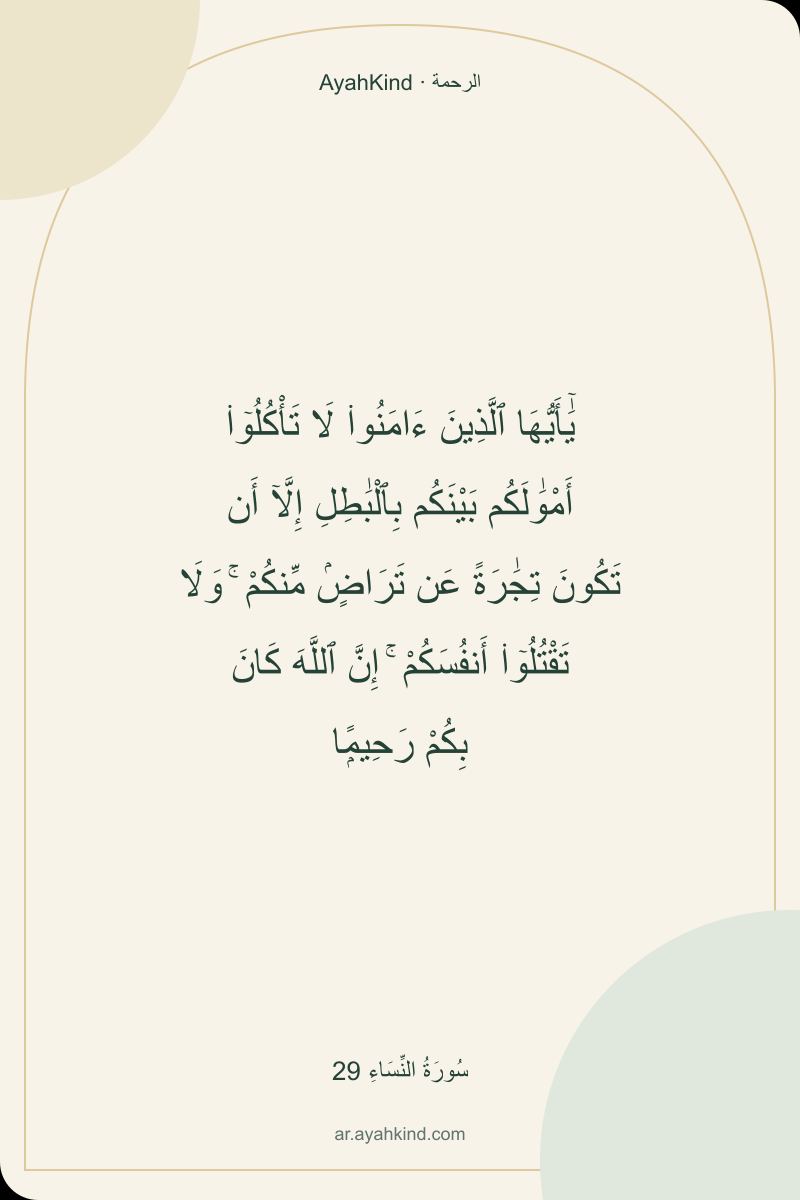 AyahKind · الرحمة
يَٰٓأَيُّهَا ٱلَّذِينَ ءَامَنُوا۟ لَا تَأْكُلُوٓا۟
أَمْوَٰلَكُم بَيْنَكُم بِٱلْبَٰطِلِ إِلَّآ أَن
تَكُونَ تِجَٰرَةً عَن تَرَاضٍۢ مِّنكُمْ ۚ وَلَا
تَقْتُلُوٓا۟ أَنفُسَكُمْ ۚ إِنَّ ٱللَّهَ كَانَ
بِكُمْ رَحِيمًۭا
سُورَةُ النِّسَاءِ 29
ar.ayahkind.com